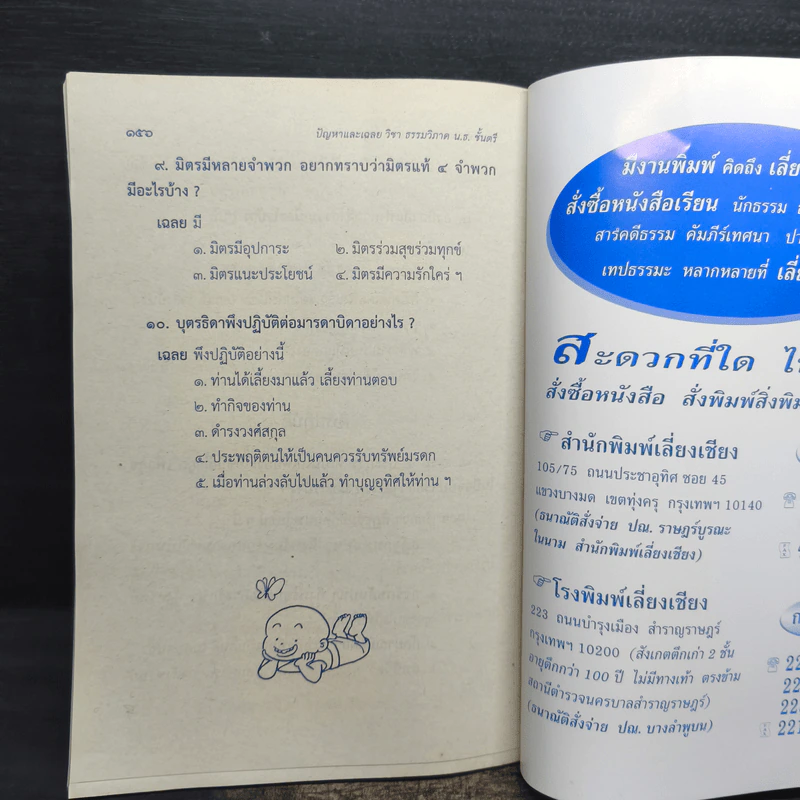 ๑๕๖
ปัญหาและเฉลย วิชา ธรรมวิภาค น.ธ. ชั้นตรี
๙. มิตรมีหลายจำพวก อยากทราบว่ามิตรแท้ ๔ จำพวก
มีอะไรบ้าง ?
เฉลย มี
๑. มิตรมีอุปการะ ๒. มิตรร่วมสุขร่วมทุกข์
๓. มิตรแนะประโยชน์ ๔. มิตรมีความรักใคร่ ฯ
๑๐. บุตรธิดาพึงปฏิบัติต่อมารดาบิดาอย่างไร ?
เฉลย พึงปฏิบัติอย่างนี้
๑. ท่านได้เลี้ยงมาแล้ว เลี้ยงท่านตอบ
๒. ทำกิจของท่าน
๓. ดำรงวงศ์สกุล
๔. ประพฤติตนให้เป็นคนควรรับทรัพย์มรดก
๕. เมื่อท่านล่วงลับไปแล้ว ทำบุญอุทิศให้ท่าน ฯ
มีงานพิมพ์ คิดถึง เลี่ย
สั่งซื้อหนังสือเรียน นักธรรม
สารคดีธรรม คัมภีร์เทศนา ปา
เทปธรรมะ หลากหลายที่ เลี่ย
สะดวกที่ใด ไป
สั่งซื้อหนังสือ สั่งพิมพ์สิ่งพิม
สำนักพิมพ์เลี่ยงเชียง
105/75 ถนนประชาอุทิศ ซอย 45
แขวงบางมด เขตทุ่งครุ กรุงเทพฯ 10140
(ธนาณัติสั่งจ่าย ปณ. ราษฎร์บูรณะ
ในนาม สำนักพิมพ์เลี่ยงเชียง)
โรงพิมพ์เลี่ยงเชียง
223 ถนนบำรุงเมือง สำราญราษฎร์
กรุงเทพฯ 10200 (สังเกตตึกเก่า 2 ชั้น
อายุตึกกว่า 100 ปี ไม่มีทางเท้า ตรงข้าม
สถานีตำรวจนครบาลสำราญราษฎร์)
(ธนาณัติสั่งจ่าย ปณ. บางลำพูบน)
22
22
22
221